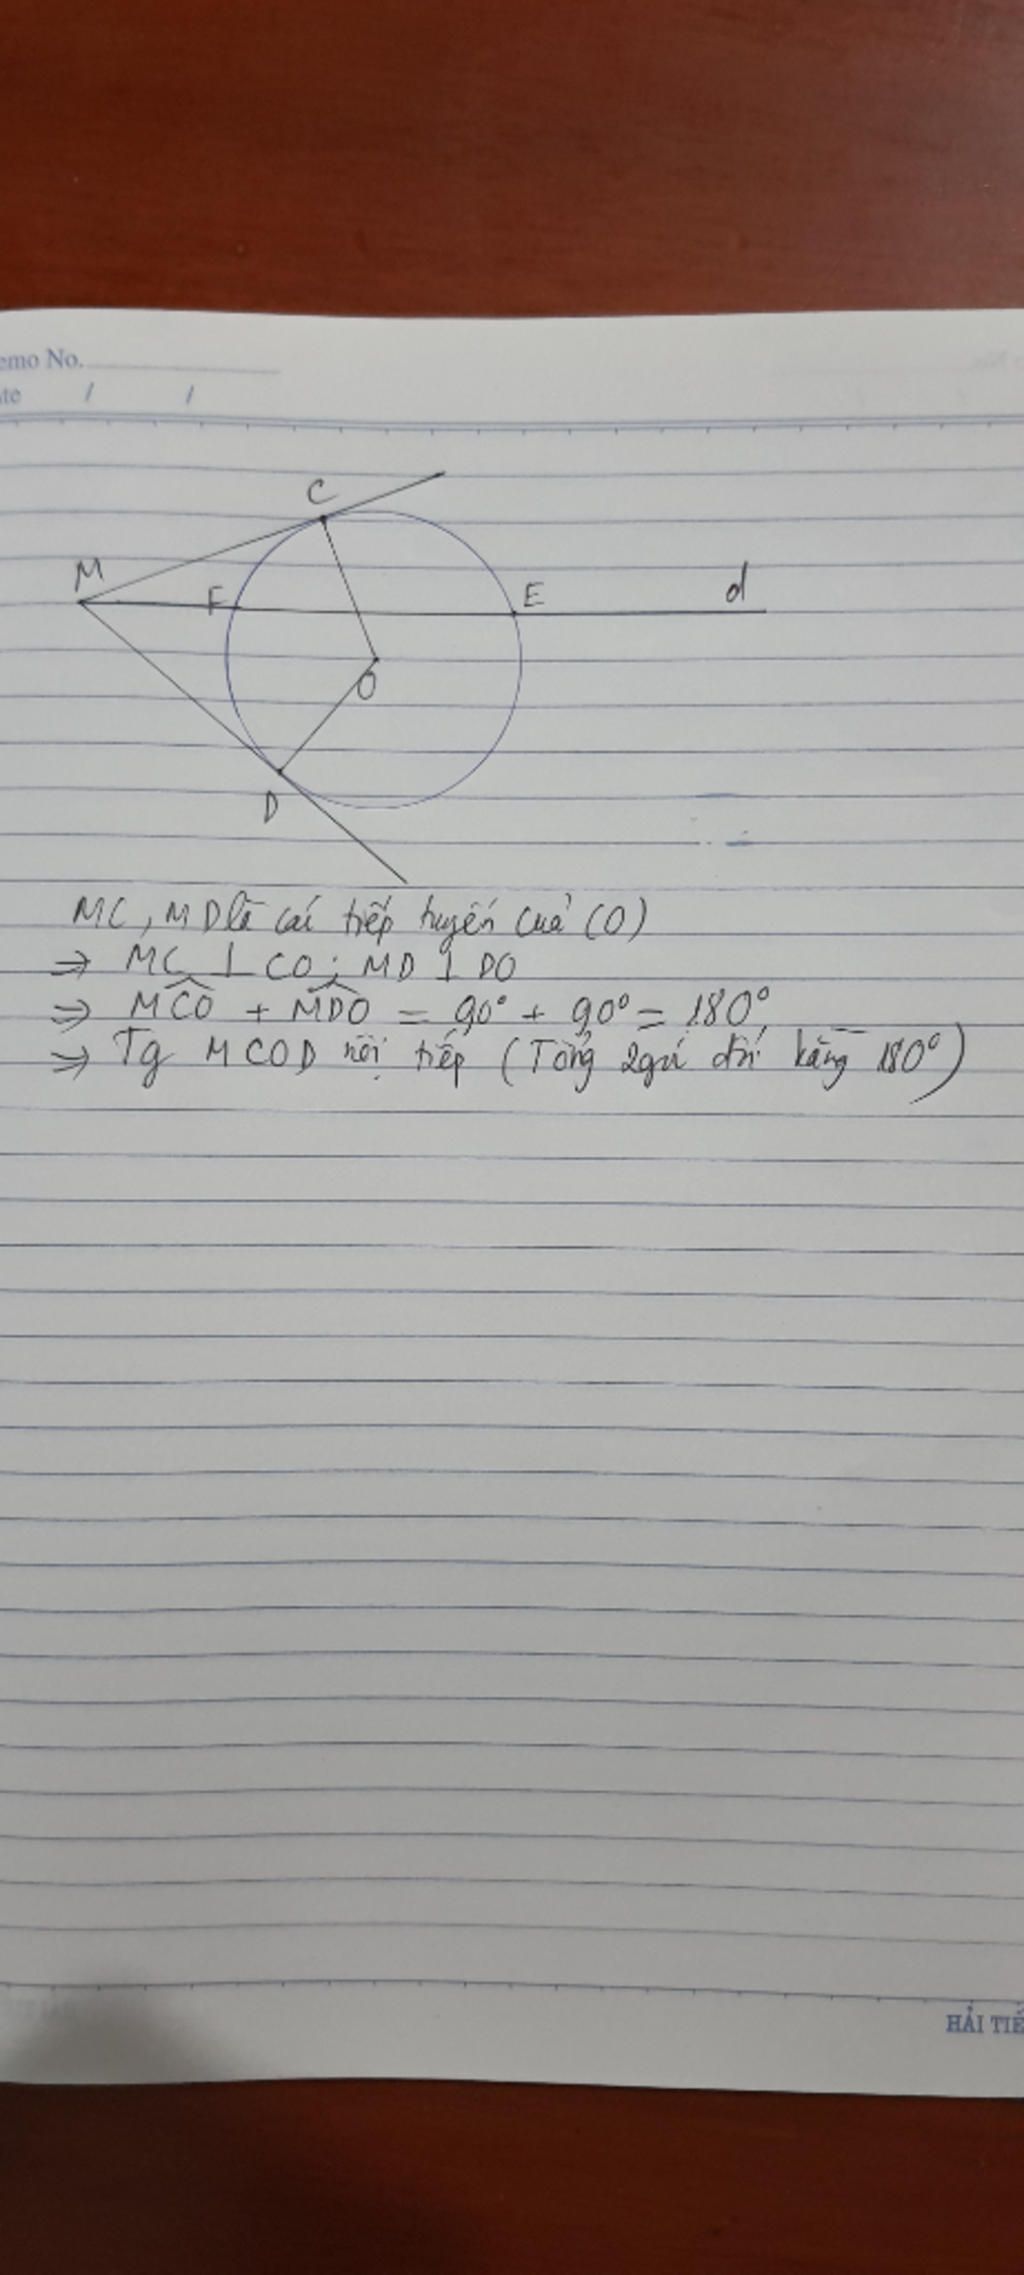 emo No.
ate / /
C
M
F
E
d
O
D
MC, MD là các tiếp tuyến của (O)
⇒ MC ⊥ CO; MD ⊥ DO
⇒ MCO + MDO = 90° + 90° = 180°
⇒ Tg MCOD nội tiếp (Tổng 2 góc đối bằng 180°)
HẢI TIẾ